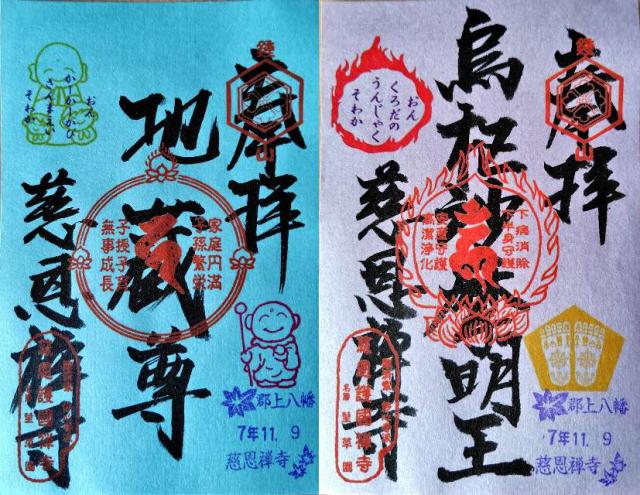 奉拝
地蔵尊
慈恩禅寺
おん
かかかび
さんまえい
そわか
家庭円満
子孫繁栄
子授子育
無事成長
郡上八幡
7年11.9
慈恩禅寺
慈恩護國禅寺
奉拝
烏枢沙摩明王
慈恩禅寺
おん
くろだの
うんじゃく
そわか
下病消除
下半身守護
安産守護
高潔浄化
郡上八幡
7年11.9
慈恩禅寺
慈恩護國禅寺
名勝 荎草園